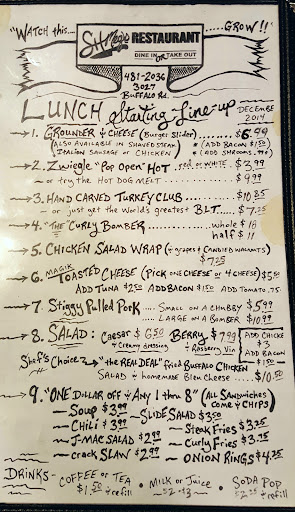 "WATCH this.... GROW!!"
RESTAURANT
DINE IN OR TAKE OUT
481-2036
3027
BUFFALO Rd.
LUNCH starting Line-up DECEMBER 2014
1. GROUNDER & CHEESE (Burger Slider) ....... $6.99
(ALSO AVAILABLE IN SHAVED STEAK * (ADD BACON $1.50)
ITALIAN SAUSAGE OR CHICKEN) * (ADD SHROOMS .99¢)
2. Zwiegle "Pop Open" HOT. red or WHITE. $3.99
~ or try the HOT DOG MELT ............ $4.99
3. HAND CARVED TURKEY CLUB ......... $10.85
~ or just get the World's greatest BLT..... $7.25
4. "THE CURLY BOMBER ........ whole $18
half $
5. CHICKEN SALAD WRAP (& grapes & CANDIED WALNUTS)
$7.25
6. MAGIK TOASTED CHEESE (PICK ONE CHEESE or 4 CHEESE) $5.50
ADD TUNA $2.00 ADD BACON $1.50 ADD TOMATO .75
7. Stiggy Pulled Pork ..... SMALL ON A CHUBBY $5.99
LARGE ON A BOMBER $10.99
8. SALAD: Caesar $6.50 BERRY $7.99 ADD CHICKE
& Creamy dressing & Raspberry Vin $3
Shef's Choice "the REAL DEAL" fried BUFFALO CHICKEN ADD BACON $1.50
SALAD & homemade Bleu Cheese ...... $10.50
9. "ONE DOLLAR OFF & ANY 1 thru 8" (ALL SANDWICHES COME & CHIPS)
~ Soup $3.99 ~ SLIDE SALAD $3.50
~ CHILI $3.99 ~ Steak Fries $3.25
~ J-MAC SALAD $2.99 ~ Curly Fries $3.75
~ crack SLAW $2.99 ~ ONION RINGS $4.25
DRINKS - COFFEE or TEA • MILK or Juice • SODA POP
$1.50 & refill ~ $2 - $3 ~ $2.25 & refill